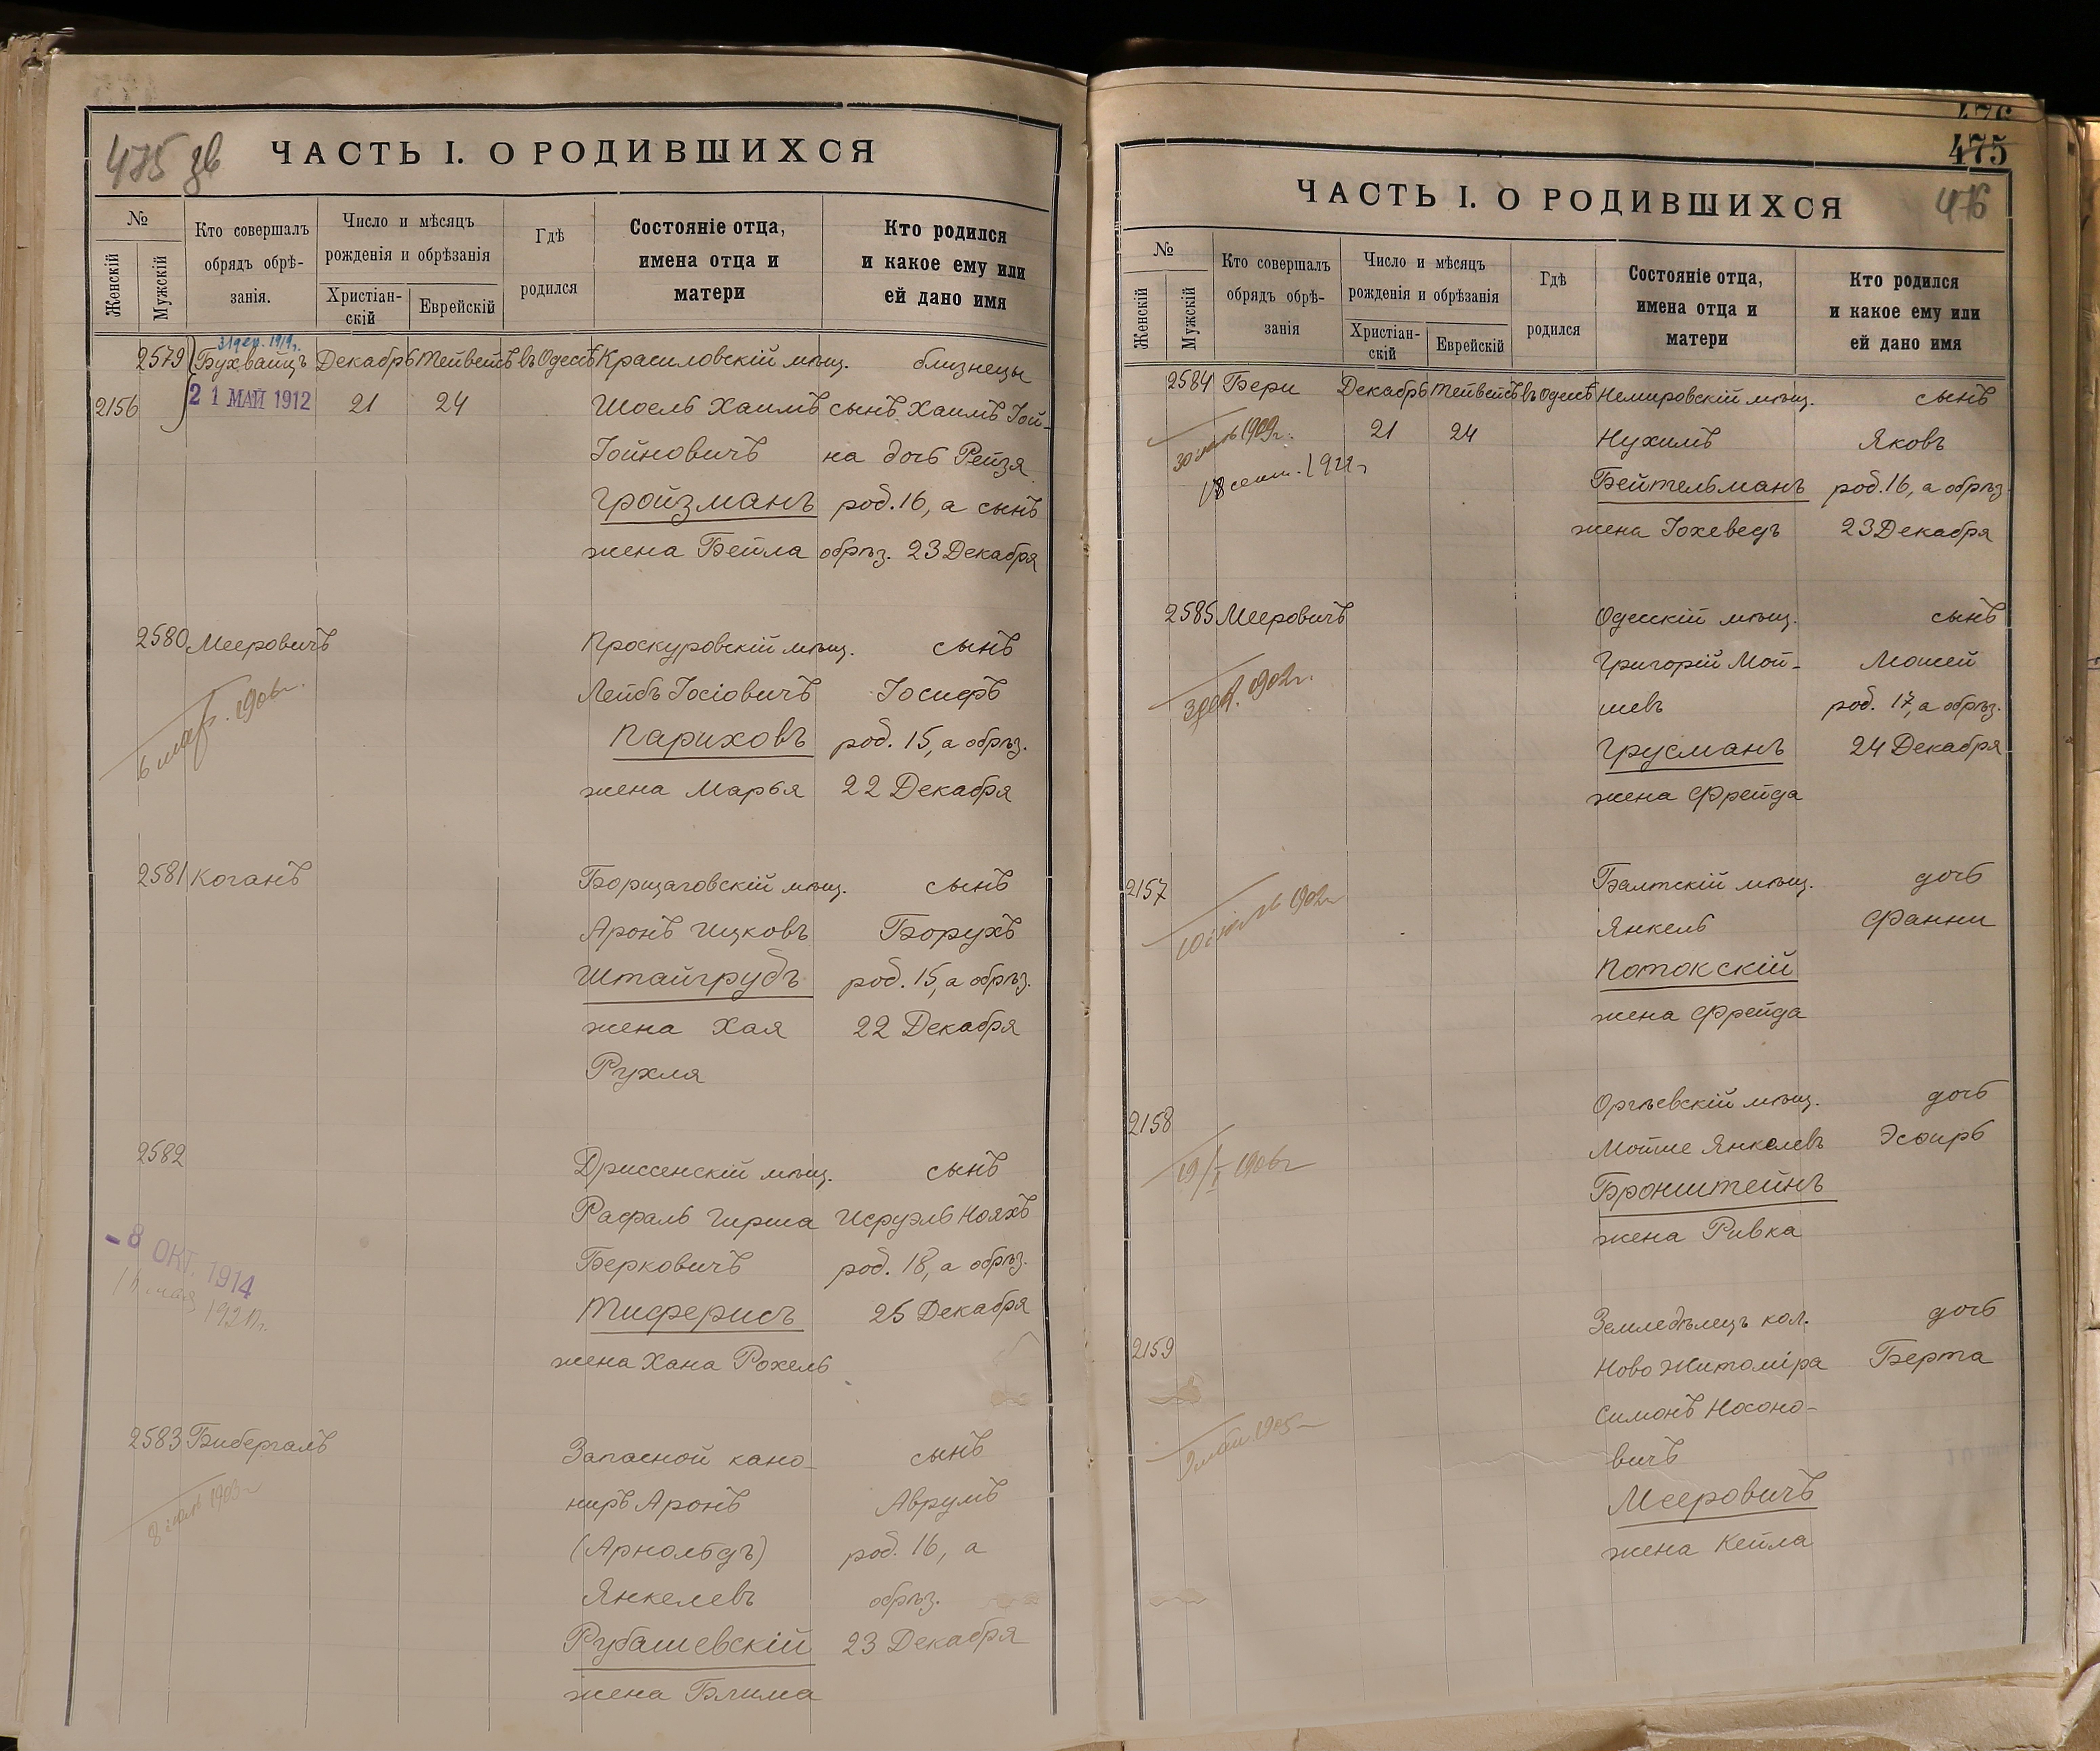 475 зв
ЧАСТЬ I. О РОДИВШИХСЯ
№
Женскій
Мужскій
Кто совершалъ
обрядъ обрѣ-
занія.
Число и мѣсяцъ
рожденія и обрѣзанія
Христіан-
скій
Еврейскій
Гдѣ
родился
Состояніе отца,
имена отца и
матери
Кто родился
и какое ему или
ей дано имя
31 дек. 1919 г.
2579 Бухвайцъ Декабрь Тейвейсъ въ Одессѣ Красиловскій мѣщ. близнецы
2156 21 МАЙ 1912 21 24 Шоель Хаимъ сынъ Хаимъ Іой-
Іойновичъ на дочь Рейзя
Гройзманъ род. 16, а сынъ
жена Бейла обрѣз. 23 Декабря
2580 Мееровичъ Проскуровскій мѣщ. сынъ
Лейбъ Іосіовичъ Іосифъ
6 мар. 1906 г.
Париховъ род. 15, а обрѣз.
жена Марья 22 Декабря
2581 Коганъ Борщаговскій мѣщ. сынъ
Аронъ Ицковъ Борухъ
Штайгрудъ род. 15, а обрѣз.
жена Хая 22 Декабря
Рухля
2582 Дриссенскій мѣщ. сынъ
Рафаль Гирша Исруэль Нояхъ
-8 ОКТ. 1914
Берковичъ род. 18, а обрѣз.
мая
Тиферисъ 25 Декабря
жена Хана Рохель
2583 Бибергалъ Запасной кано-  сынъ
ниръ Аронъ Аврумъ
8 1903 г
(Арнольдъ) род. 16, а
Янкелевъ обрѣз.
Рубашевскій 23 Декабря
жена Блима
476
475
ЧАСТЬ I. О РОДИВШИХСЯ 476
№
Женскій
Мужскій
Кто совершалъ
обрядъ обрѣ-
занія
Число и мѣсяцъ
рожденія и обрѣзанія
Христіан-
скій
Еврейскій
Гдѣ
родился
Состояніе отца,
имена отца и
матери
Кто родился
и какое ему или
ей дано имя
2584 Бери Декабрь Тейвейсъ въ Одессѣ Немировскій мѣщ. сынъ
30 1909 г. 21 24 Нухимъ Яковъ
18 сент. 1911 г Бейтельманъ род. 16, а обрѣз.
жена Іохеведъ 23 Декабря
2585 Мееровичъ Одесскій мѣщ. сынъ
Григорій Мой- Мошей
3 дек. 1902 г.
шевъ род. 17, а обрѣз.
Грусманъ 24 Декабря
жена Фрейда
2157 Балтскій мѣщ. дочь
10 1902 г Янкель Фанни
Потокскій
жена Фрейда
2158 Оргѣевскій мѣщ. дочь
Мотие Янкелевъ Эсфирь
19/I 1906 г
Бронштейнъ
жена Ривка
Земледѣлецъ кол. дочь
2159 Ново Житоміра Берта
Симонъ Носоно-
1905 г
вичъ
Мееровичъ
жена Кейла